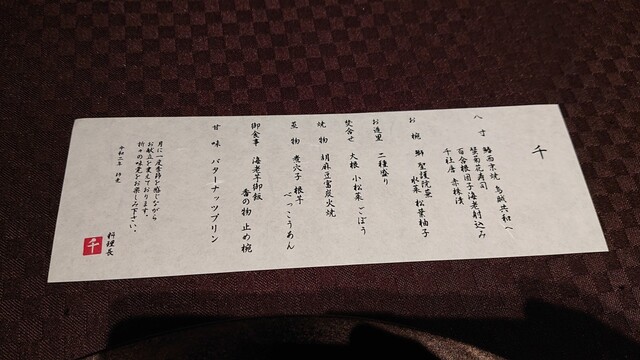 千
八寸 鰆西京焼 烏賊共和へ
菊花寿司
百合根団子 海老射込み
千社唐 赤株漬
お椀 鰤 聖護院蕪
水菜 松葉柚子
お造里 二種盛り
焚合せ 大根 小松菜 ごぼう
焼物 胡麻豆富炭火焼
蒸物 煮穴子 根芋
べっこうあん
御食事 海老芋御飯
香の物 止め椀
甘味 バターナッツプリン
月に一度季節を感じながら
お献立を変えております。
折々の味覚をお楽しみ下さい。
令和二年 師走
料理長
千